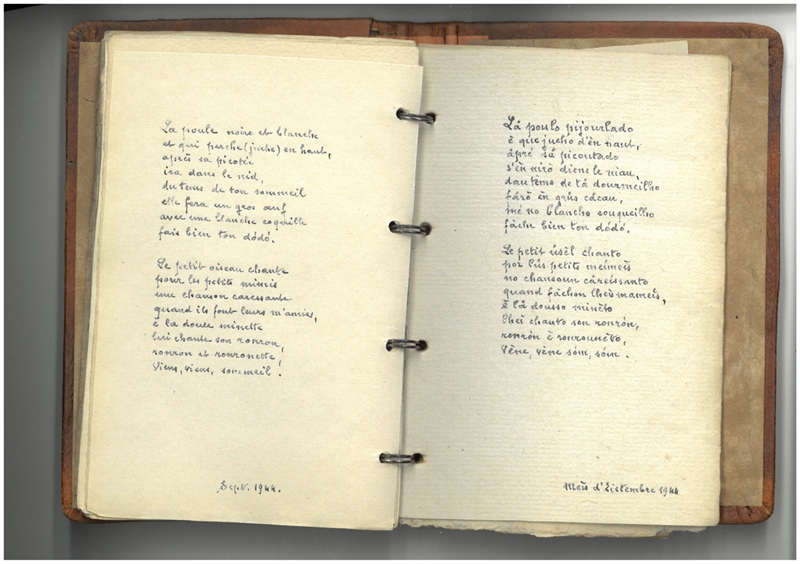 La poule noire et blanche
et qui perche (juche) en haut,
après sa picotée
ira dans le nid,
du tems de ton sommeil
elle fera un gros œuf
avec une blanche coquille
fais bien ton dódó.
Le petit oiseau chante
pour les petits minets
une chanson caressante
quand ils font leurs m'amies,
è la douce minette
lui chante son ronron,
ronron et ronronette,
Viens, viens, sommeil.
Sept. 1944.
Lâ poulo pijourlado
è que jucho d'én naut,
âpré sâ picoutado
s'én nirò diens le niau,
dau téms de tâ dourmeilho
fârò én grûs câcau,
mé no blancho couqueilho
fâche bien ton dódó.
Le petit úsèl chanto
por lûs petits meimeis
no chansoun câreissanto
quand fâchon lheis mameis,
è lâ doûsso minéto
lheî chanto son ronrón,
ronrón è ronrounéto,
Vène, vène sóm, sóm.
Meis d'Sistembre 1944